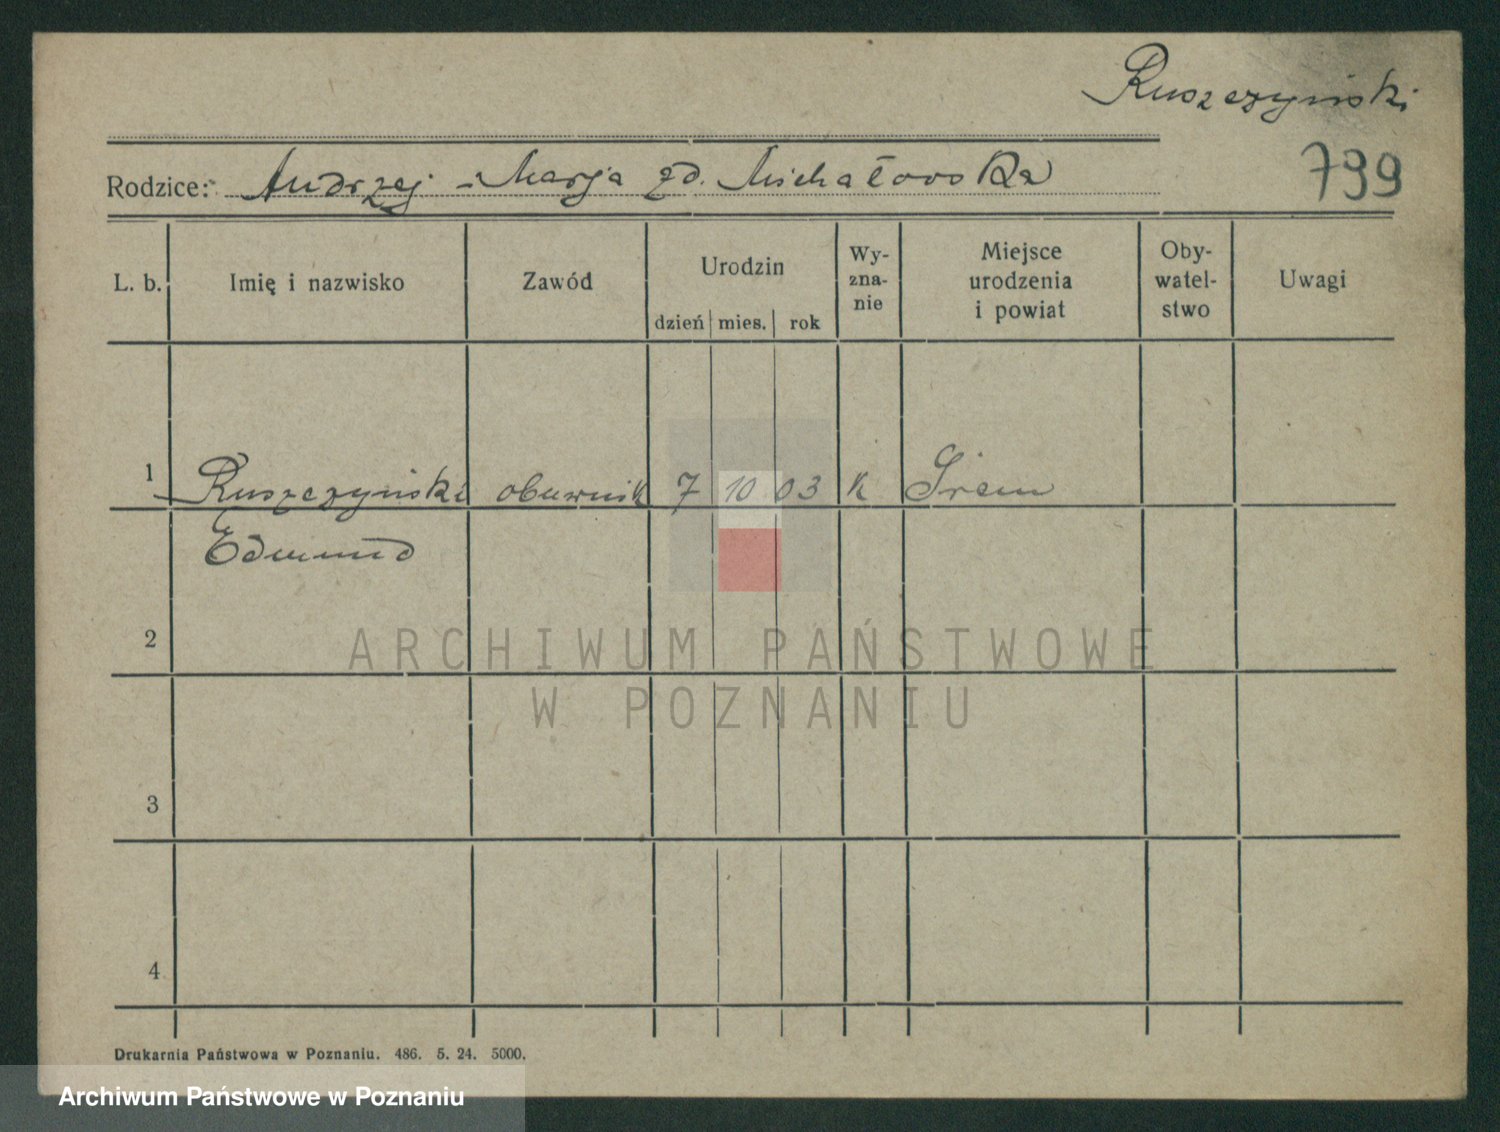 Ruszczyński
799
Rodzice: Andrzej - Marja zd. Michałowska
L. b. Imię i nazwisko Zawód Urodzin dzień mies. rok Wy-zna-nie Miejsce urodzenia i powiat Oby-watel-stwo Uwagi
1 Ruszczyński obuwnik 7 10 03 K Śrem
Edmund
2
ARCHIWUM PAŃSTWOWE
W POZNANIU
3
4
Drukarnia Państwowa w Poznaniu. 486. 5. 24. 5000.
Archiwum Państwowe w Poznaniu